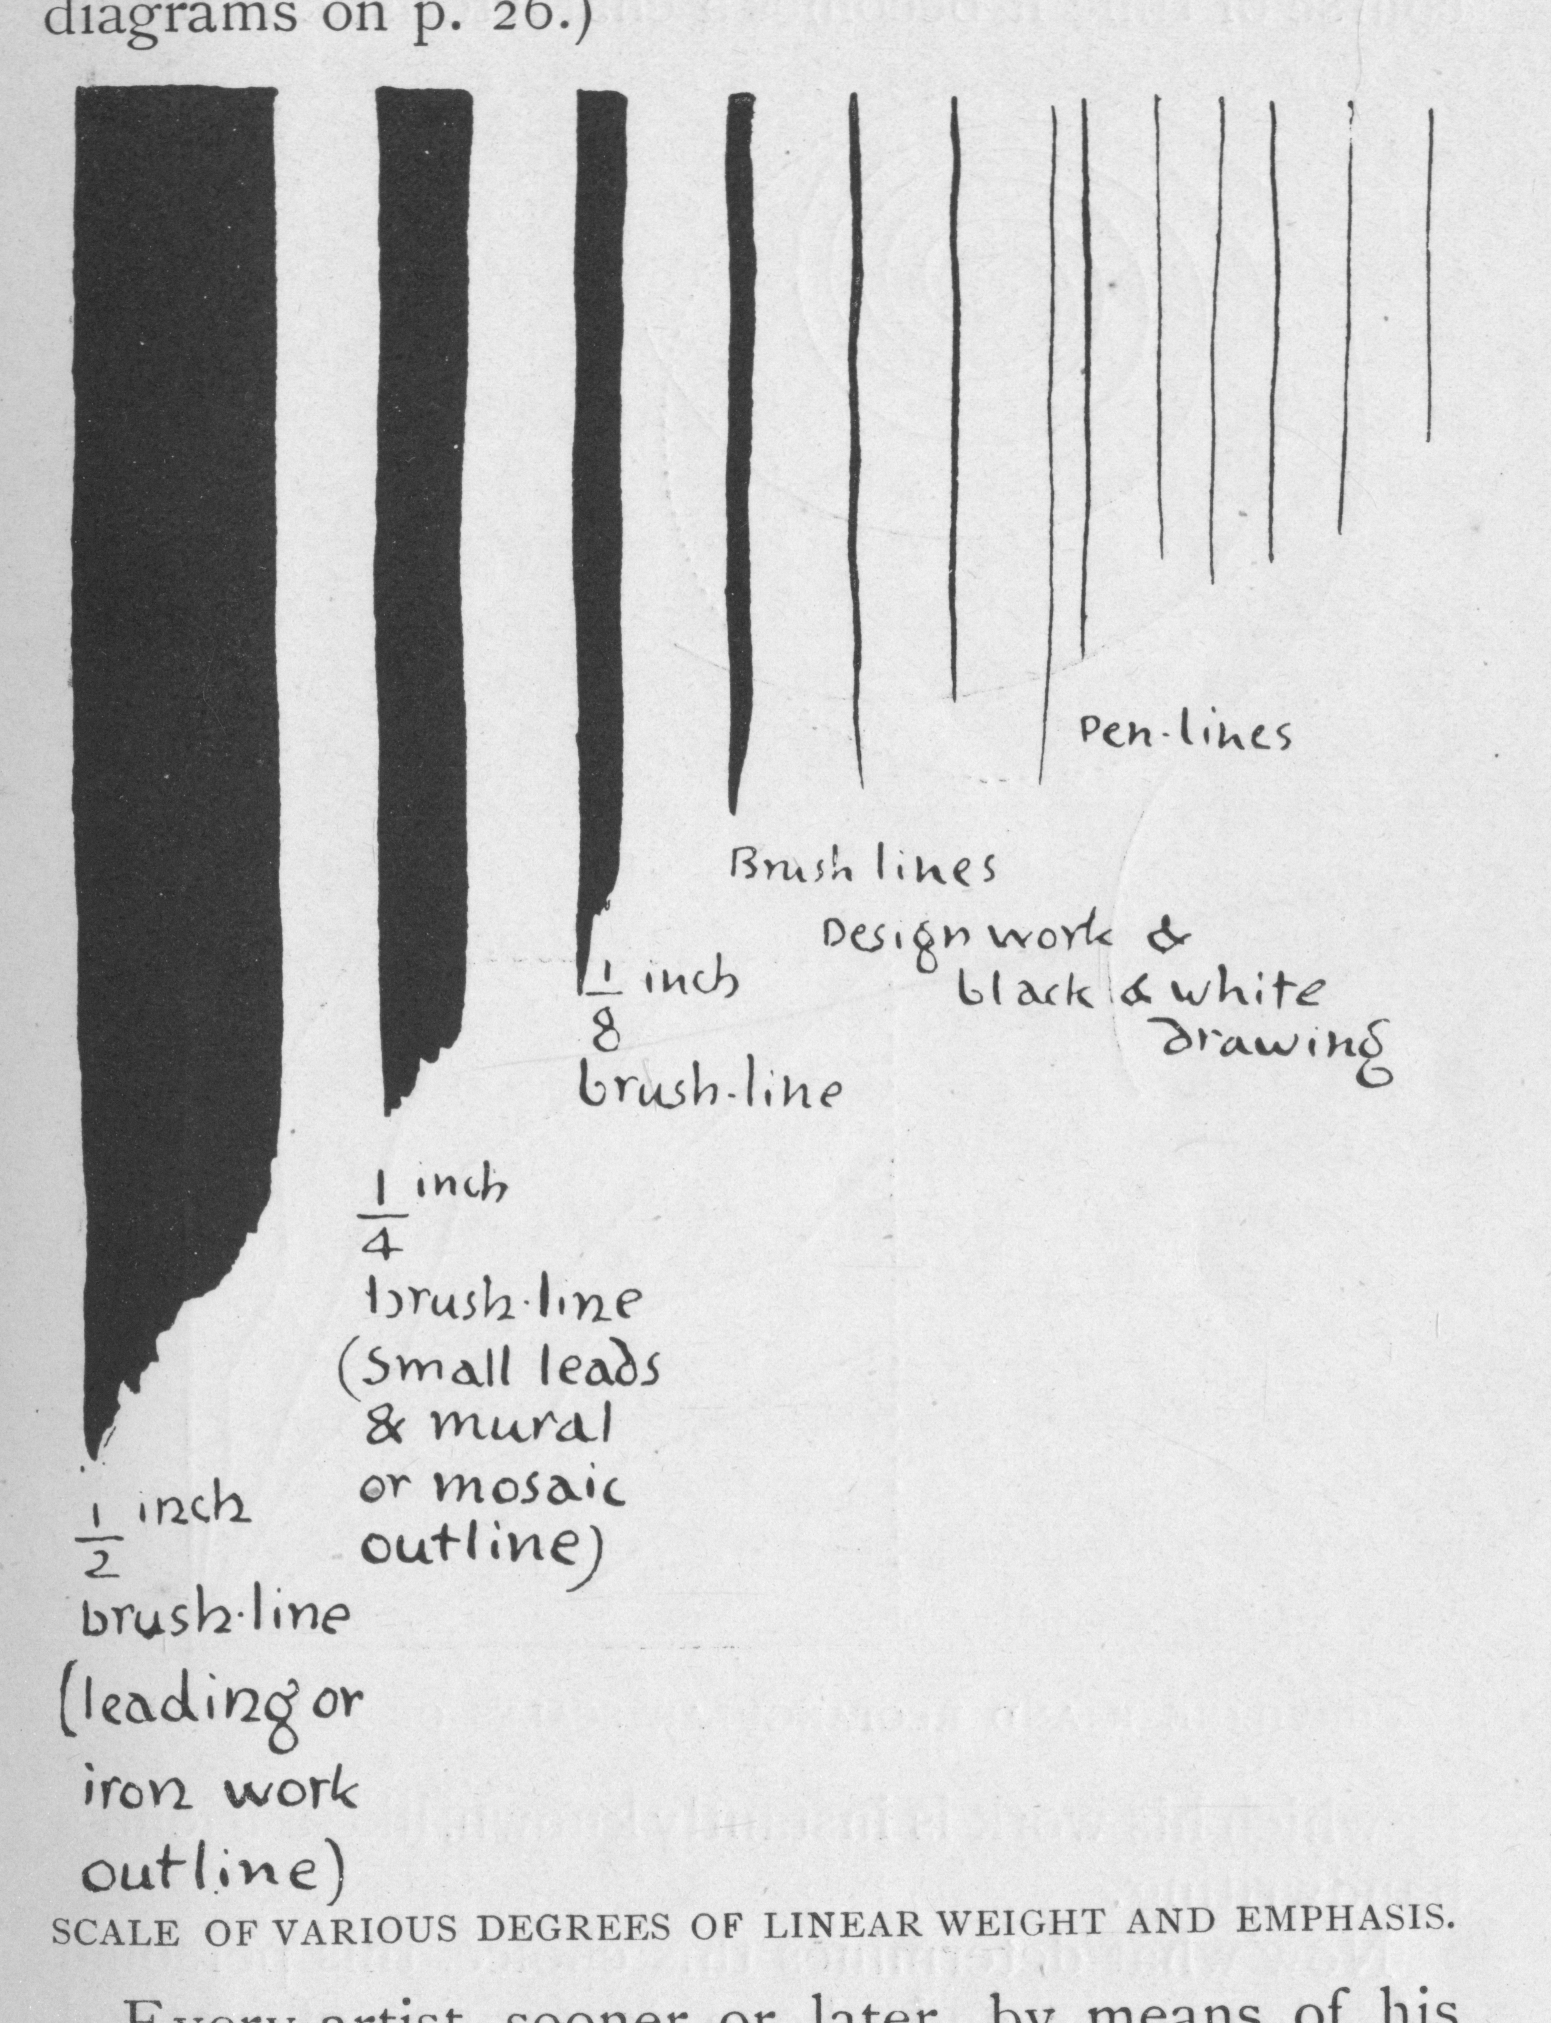 diagrams on p. 26.)
Pen-lines
Brush lines
Design work &
black & white
drawing
1/8 inch
brush-line
1/4 inch
brush-line
(small leads
& mural
or mosaic
outline)
1/2 inch
brush-line
(leading or
iron work
outline)
SCALE OF VARIOUS DEGREES OF LINEAR WEIGHT AND EMPHASIS.
Every artist, sooner or later, by means of his